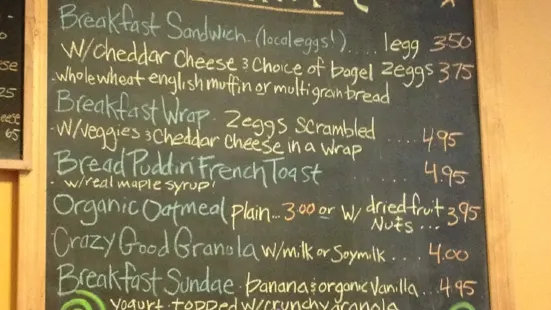 Breakfast Sandwich (local eggs!).... 1egg 3.50
w/cheddar cheese & choice of bagel 2eggs 3.75
whole wheat english muffin or multigran bread
Breakfast Wrap. 2eggs scrambled
w/veggies & cheddar cheese in a wrap .... 4.95
Bread Puddin' French Toast .... 4.95
w/real maple syrup!
Organic Oatmeal plain... 3.00 or w/ dried fruit 3.95
Nuts ...
Crazy Good Granola w/milk or Soymilk .... 4.00
Breakfast Sundae. banana & organic Vanilla... 4.95
yogurt. topped w/crunchy granola
65